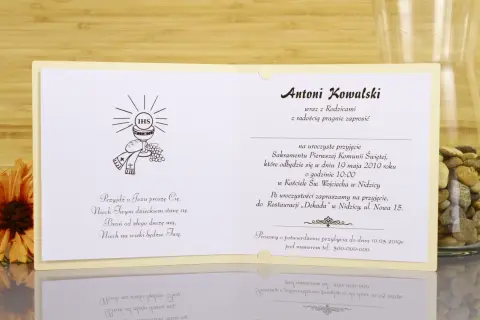 IHS
Przyjdź o Jezu proszę Cię
Niech Twym dzieckiem stanę się
Broń od złego duszę mą,
Niech na wieki będzie Twą
Antoni Kowalski
wraz z Rodzicami
z radością pragnie zaprosić
na uroczyste przyjęcie
Sakramentu Pierwszej Komunii Świętej,
które odbędzie się w dniu 19 maja 2019 roku
o godzinie 10:00
w Kościele Św. Wojciecha w Nidzicy
Po uroczystości zapraszamy na przyjęcie,
do Restauracji „Dekada" w Nidzicy ul. Nowa 15.
Prosimy o potwierdzenie przybycia do dnia 10.05.2019r
pod numerem tel. 500-000-000